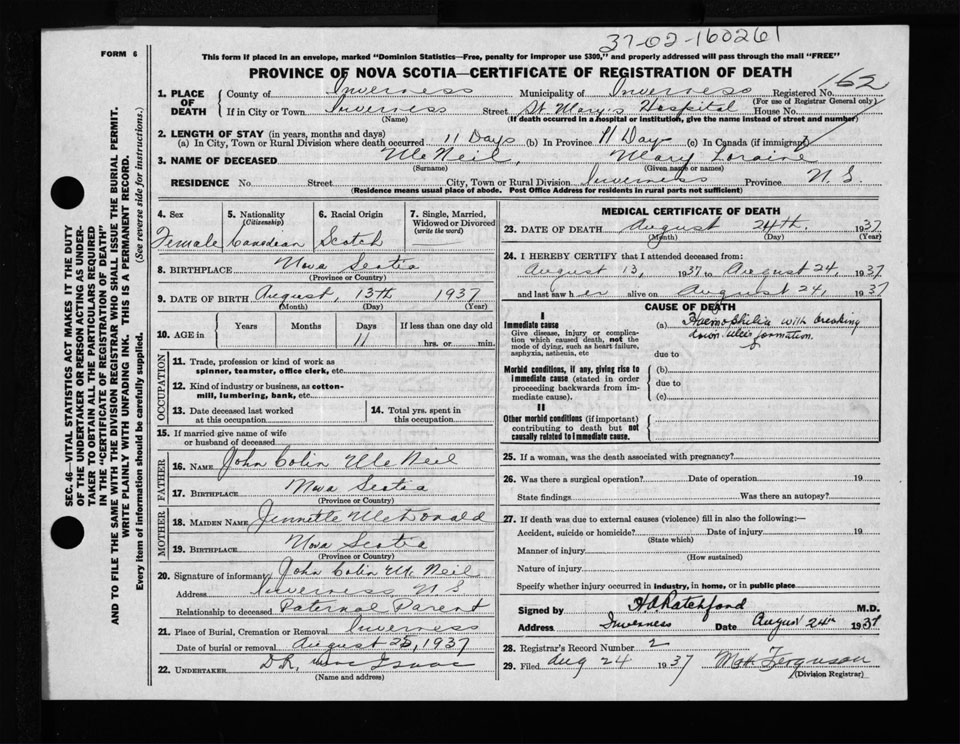 37-02-160261
FORM 6
This form if placed in an envelope, marked "Dominion Statistics—Free, penalty for improper use $300," and properly addressed will pass through the mail "FREE"
PROVINCE OF NOVA SCOTIA—CERTIFICATE OF REGISTRATION OF DEATH
SEC. 46—VITAL STATISTICS ACT MAKES IT THE DUTY
OF THE UNDERTAKER OR PERSON ACTING AS UNDER-
TAKER TO OBTAIN ALL THE PARTICULARS REQUIRED
IN THE "CERTIFICATE OF REGISTRATION OF DEATH"
AND TO FILE THE SAME WITH THE DIVISION REGISTRAR WHO SHALL ISSUE THE BURIAL PERMIT.
WRITE PLAINLY WITH UNFADING INK. THIS IS A PERMANENT RECORD.
Every item of information should be carefully supplied. (See reverse side for instructions.)
1. PLACE OF DEATH County of Inverness Municipality of Inverness Registered No. 162
(For use of Registrar General only)
If in City or Town Inverness Street St. Mary's Hospital House No.
(Name) (If death occurred in a hospital or institution, give the name instead of street and number)
2. LENGTH OF STAY (in years, months and days)
(a) In City, Town or Rural Division where death occurred 11 Days (b) In Province 11 Day (c) In Canada (if immigrant)
3. NAME OF DECEASED McNeil, Mary Loraine
(Surname) (Given name or names)
RESIDENCE No. Street City, Town or Rural Division Inverness Province N. S.
(Residence means usual place of abode. Post Office Address for residents in rural parts not sufficient)
4. Sex 5. Nationality (Citizenship) 6. Racial Origin 7. Single, Married, Widowed or Divorced (write the word)
Female Canadian Scotch
8. BIRTHPLACE Nova Scotia
(Province or Country)
9. DATE OF BIRTH August, 13th 1937
(Month) (Day) (Year)
10. AGE in Years Months Days If less than one day old
11 hrs. or min.
OCCUPATION
11. Trade, profession or kind of work as
spinner, teamster, office clerk, etc.
12. Kind of industry or business, as cotton-
mill, lumbering, bank, etc.
13. Date deceased last worked at this occupation
14. Total yrs. spent in this occupation
15. If married give name of wife
or husband of deceased
FATHER
16. NAME John Colin McNeil
17. BIRTHPLACE Nova Scotia
(Province or Country)
MOTHER
18. MAIDEN NAME Jennette McDonald
19. BIRTHPLACE Nova Scotia
(Province or Country)
20. Signature of informant John Colin McNeil
Address Inverness, N S
Relationship to deceased Paternal Parent
21. Place of Burial, Cremation or Removal Inverness
Date of burial or removal August 25, 1937
22. UNDERTAKER D.R. Isaac
(Name and address)
MEDICAL CERTIFICATE OF DEATH
23. DATE OF DEATH August 24th. 1937
(Month) (Day) (Year)
24. I HEREBY CERTIFY that I attended deceased from:
August 13, 1937 to August 24, 1937
and last saw her alive on August 24, 1937
CAUSE OF DEATH
I
Immediate cause
Give disease, injury or complica-
tion which caused death, not the
mode of dying, such as heart failure,
asphyxia, asthenia, etc
(a) Haemophilia with breaking
down ulcer formation.
due to
Morbid conditions, if any, giving rise to
immediate cause (stated in order
proceeding backwards from im-
mediate cause).
(b)
due to
(c)
II
Other morbid conditions (if important)
contributing to death but not
causally related to immediate cause.
25. If a woman, was the death associated with pregnancy?
26. Was there a surgical operation? Date of operation 19
State findings Was there an autopsy?
27. If death was due to external causes (violence) fill in also the following:—
Accident, suicide or homicide? Date of injury 19
(State which)
Manner of injury
(How sustained)
Nature of injury
Specify whether injury occurred in industry, in home, or in public place
Signed by H A Ratchford M.D.
Address Inverness Date August 24th 1937
28. Registrar's Record Number 2
29. Filed Aug 24 1937 Ferguson
(Division Registrar)